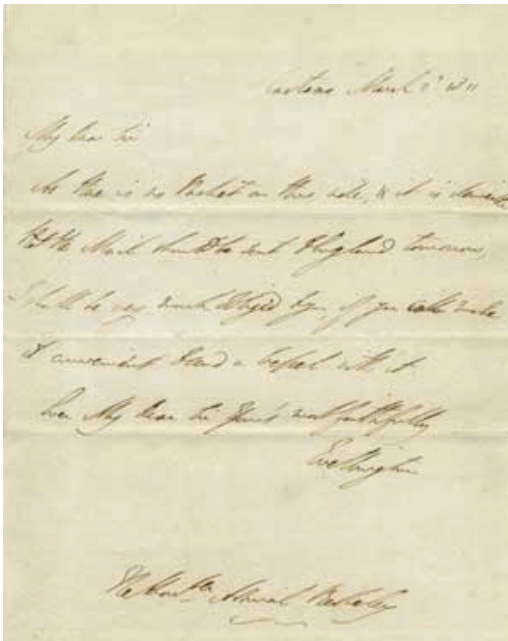 Cartaxo March 1st 1811
My dear Sir
As there is no Packet on this side, & it is desirable
that the Mail should be sent to England tomorrow,
I shall be very much obliged to you if you could make
it convenient to send a Vessel with it.
Ever My dear Sir Yours most faithfully
Wellington
The Honble Admiral Berkeley